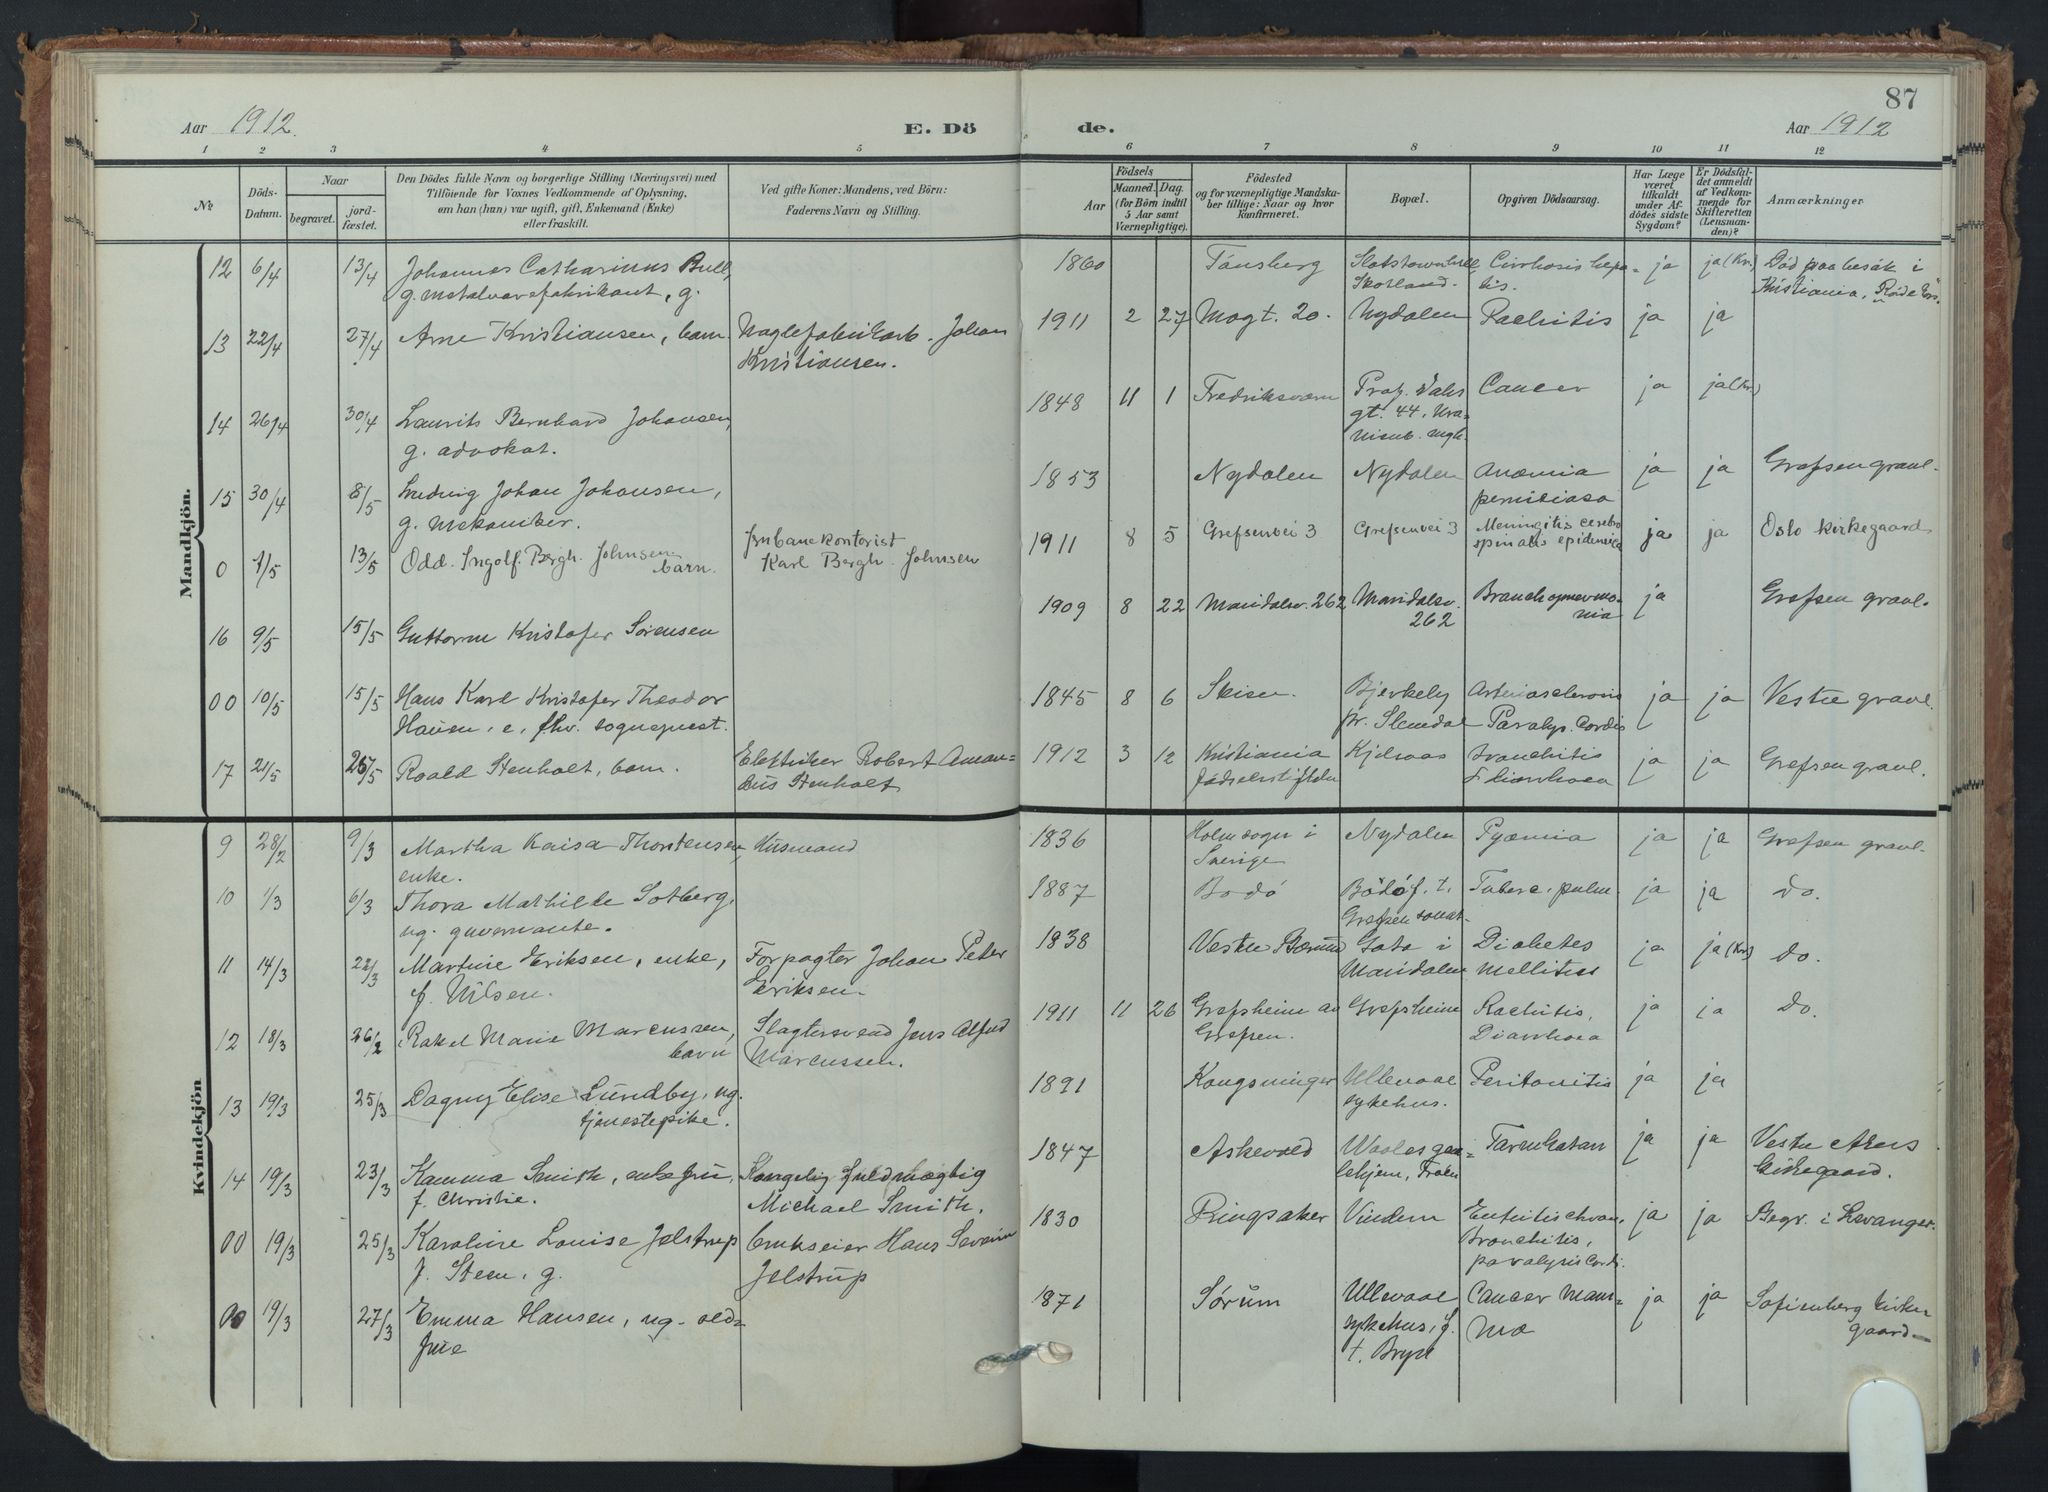 87
Aar 1912.
E. Dö
de.
Aar 1912
1 2 3 4 5 6 7 8 9 10 11 12
№
Döds-
Datum.
Naar
begravet.
jord-
fæstet.
Den Dödes fulde Navn og borgerlige Stilling (Næringsvei) med
Tilföiende for Voxnes Vedkommende af Oplysning,
om han (hun) var ugift, gift, Enkemand (Enke)
eller fraskilt.
Ved gifte Koner: Mandens, ved Börn:
Faderens Navn og Stilling.
Födsels
Aar
Maaned. Dag.
(for Börn indtil
5 Aar samt
Værnepligtige).
Födested
og for værnepligtige Mandska-
ber tillige: Naar og hvor
Konfirmeret.
Bopæl.
Opgiven Dödsaarsag.
Har Læge
været
tilkaldt
under Af-
dödes sidste
Sygdom?
Er Dödsfal-
det anmeldt
af Vedkom-
mende for
Skifteretten
(Lensman-
den)?
Anmærkninger
Mandkjön.
12 6/4 13/4 Johannes Catharinus Bull, 1860 Tönsberg Cirrhosis hepa- ja ja (Kr.) Död paa besök i
g. metalvarefabrikant, g. Skotland. tis. Kristiania, Röde Kors.
13 22/4 27/4 Arne Kristiansen, barn. Johan 1911 2 27 Nydalen Rachitis ja ja
Kristiansen.
14 26/4 30/4 Laurits Bernhard Johansen, 1848 11 1 Fredriksværn Prof. Dahls Cancer ja ja (Kr.)
g. advokat. gt. 44.
15 30/4 8/5 Ludvig Johan Johansen, 1853 Nydalen Nydalen Anæmia ja ja Grefsen gravl.
g. mekaniker. perniciosa
0 1/5 13/5 Odd. Ingolf. Bergh. Johnsen Jernbanekontorist 1911 8 5 Grefsenvei 3 Grefsenvei 3 Meningitis cerebro ja ja Oslo kirkegaard
barn. Karl Bergh. Johnsen spinalis epidemica
16 9/5 15/5 Guttorm Kristofer Sörensen 1909 8 22 Maridalsv. 262 Maridalsv. Bronchopnevmo- ja Grefsen gravl.
262 nia
00 10/5 15/5 Hans Karl Kristofer Theodor 1845 8 6 Skien. Bjerkely Arteriosclerosis ja ja Vestre gravl.
e, fhv. sogneprest. pr. Slemdal Paralys. Cordis
17 21/5 25/5 Roald Stenholt, barn. Elektriker Robert Aman- 1912 3 12 Kristiania Kjelsaas Bronchitis ja ja Grefsen gravl.
dus Stenholt Födselsstiftelse Diarrhoea
Kvindekjön
9 28/2 9/3 Martha Kaisa Thorstensen, Husmand 1836 Holm sogn i Nydalen Pyæmia ja ja Grefsen gravl.
enke. Sverige
10 1/3 6/3 Thora Mathilde Solberg, 1887 Bodö Bodö f. t. Tuberc. pulm. ja ja do.
ug. guvernante. Grefsen sanat.
11 14/3 22/3 Martine Eriksen, enke, Forpagter Johan Peter 1838 Vestre Bærum i Diabetes ja ja (Kr.) do.
f. Nilsen. Eriksen. Maridalen mellitus
12 18/3 26/2 Rakel Marie Marcussen, Slagtersvend Jens Alfred 1911 11 26 Grefsheim av Grefsheim Rachitis, ja ja do.
barn Marcussen. Grefsen. Diarrhoea
13 19/3 25/3 Dagny Elise Lundby, ug. 1891 Kongsvinger Ullevaal Peritonitis ja ja
tjenestepike. sykehus.
14 19/3 23/3 Kamma Smith, enkefru, Kongelig fuldmægtig 1847 Askevold Tarmkatarr ja ja Vestre Akers
f. Christie. Michael Smith. kirkegaard.
00 19/3 25/3 Karoline Louise Jelstrup Brukseier Hans Severin 1830 Ringsaker Vindern ja ja Begr. i Levanger.
f. Steen, g. Jelstrup Bronchitis,
paralysis Cordis.
00 19/3 27/3 Emma Hansen, ug. old- 1871 Sörum Ullevaal Cancer Mam- ja ja Sofienberg kirke
frue sykehus, f. mæ gaard
t. Bryn